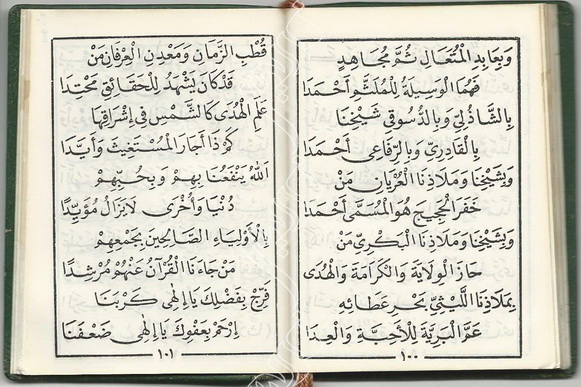 وَبِعَابِدِ الْمُتَعَالِ ثُمَّ مُجَاهِدٍ
فَهُمَا الْوَسِيلَةُ لِلْمُلَثَّمِ أَحْمَدَا
بِالشَّاذُلِيِّ وَبِالدُّسُوقِي شَيْخِنَا
بِالْقَادِرِيِّ وَبِالرِّفَاعِي أَحْمَدَا
وَبِشَيْخِنَا وَمَلَاذِنَا الْعُرْيَانِ مَنْ
خَفَرَ الْحَجِيجَ هُوَ الْمُسَمَّى أَحْمَدَا
وَبِشَيْخِنَا وَمَلَاذِنَا الْبَكْرِيِّ مَنْ
حَازَ الْوِلَايَةَ وَالْكَرَامَةَ وَالْهُدَى
بِمَلَاذِنَا اللَّيْثِيِّ بَحْرِ عَطَائِهِ
عَمَّ الْبَرِيَّةَ لِلْأَحِبَّةِ وَالْعِدَا
١٠٠
قُطْبِ الزَّمَانِ وَمَعْدِنِ الْعِرْفَانِ مَنْ
قَدْ كَانَ يَشْهَدُ لِلْحَقَائِقِ مَحْتِدَا
عَلَمِ الْهُدَى كَالشَّمْسِ فِي إِشْرَاقِهَا
كَمْ ذَا أَجَارَ الْمُسْتَغِيثَ وَأَيَّدَا
اللهُ يَنْفَعُنَا بِهِمْ وَبِحُبِّهِمْ
دُنْيَا وَأُخْرَى لَا يَزَالُ مُؤَيِّدًا
بِالْأَوْلِيَاءِ الصَّالِحِينَ بِجَمْعِهِمْ
مَنْ جَاءَنَا الْقُرْآنُ عَنْهُمْ مُرْشِدًا
فَرِّجْ بِفَضْلِكَ يَا إِلٰهِي كَرْبَنَا
إِرْحَمْ بِعَفْوِكَ يَا إِلٰهِي ضَعْفَنَا
١٠١